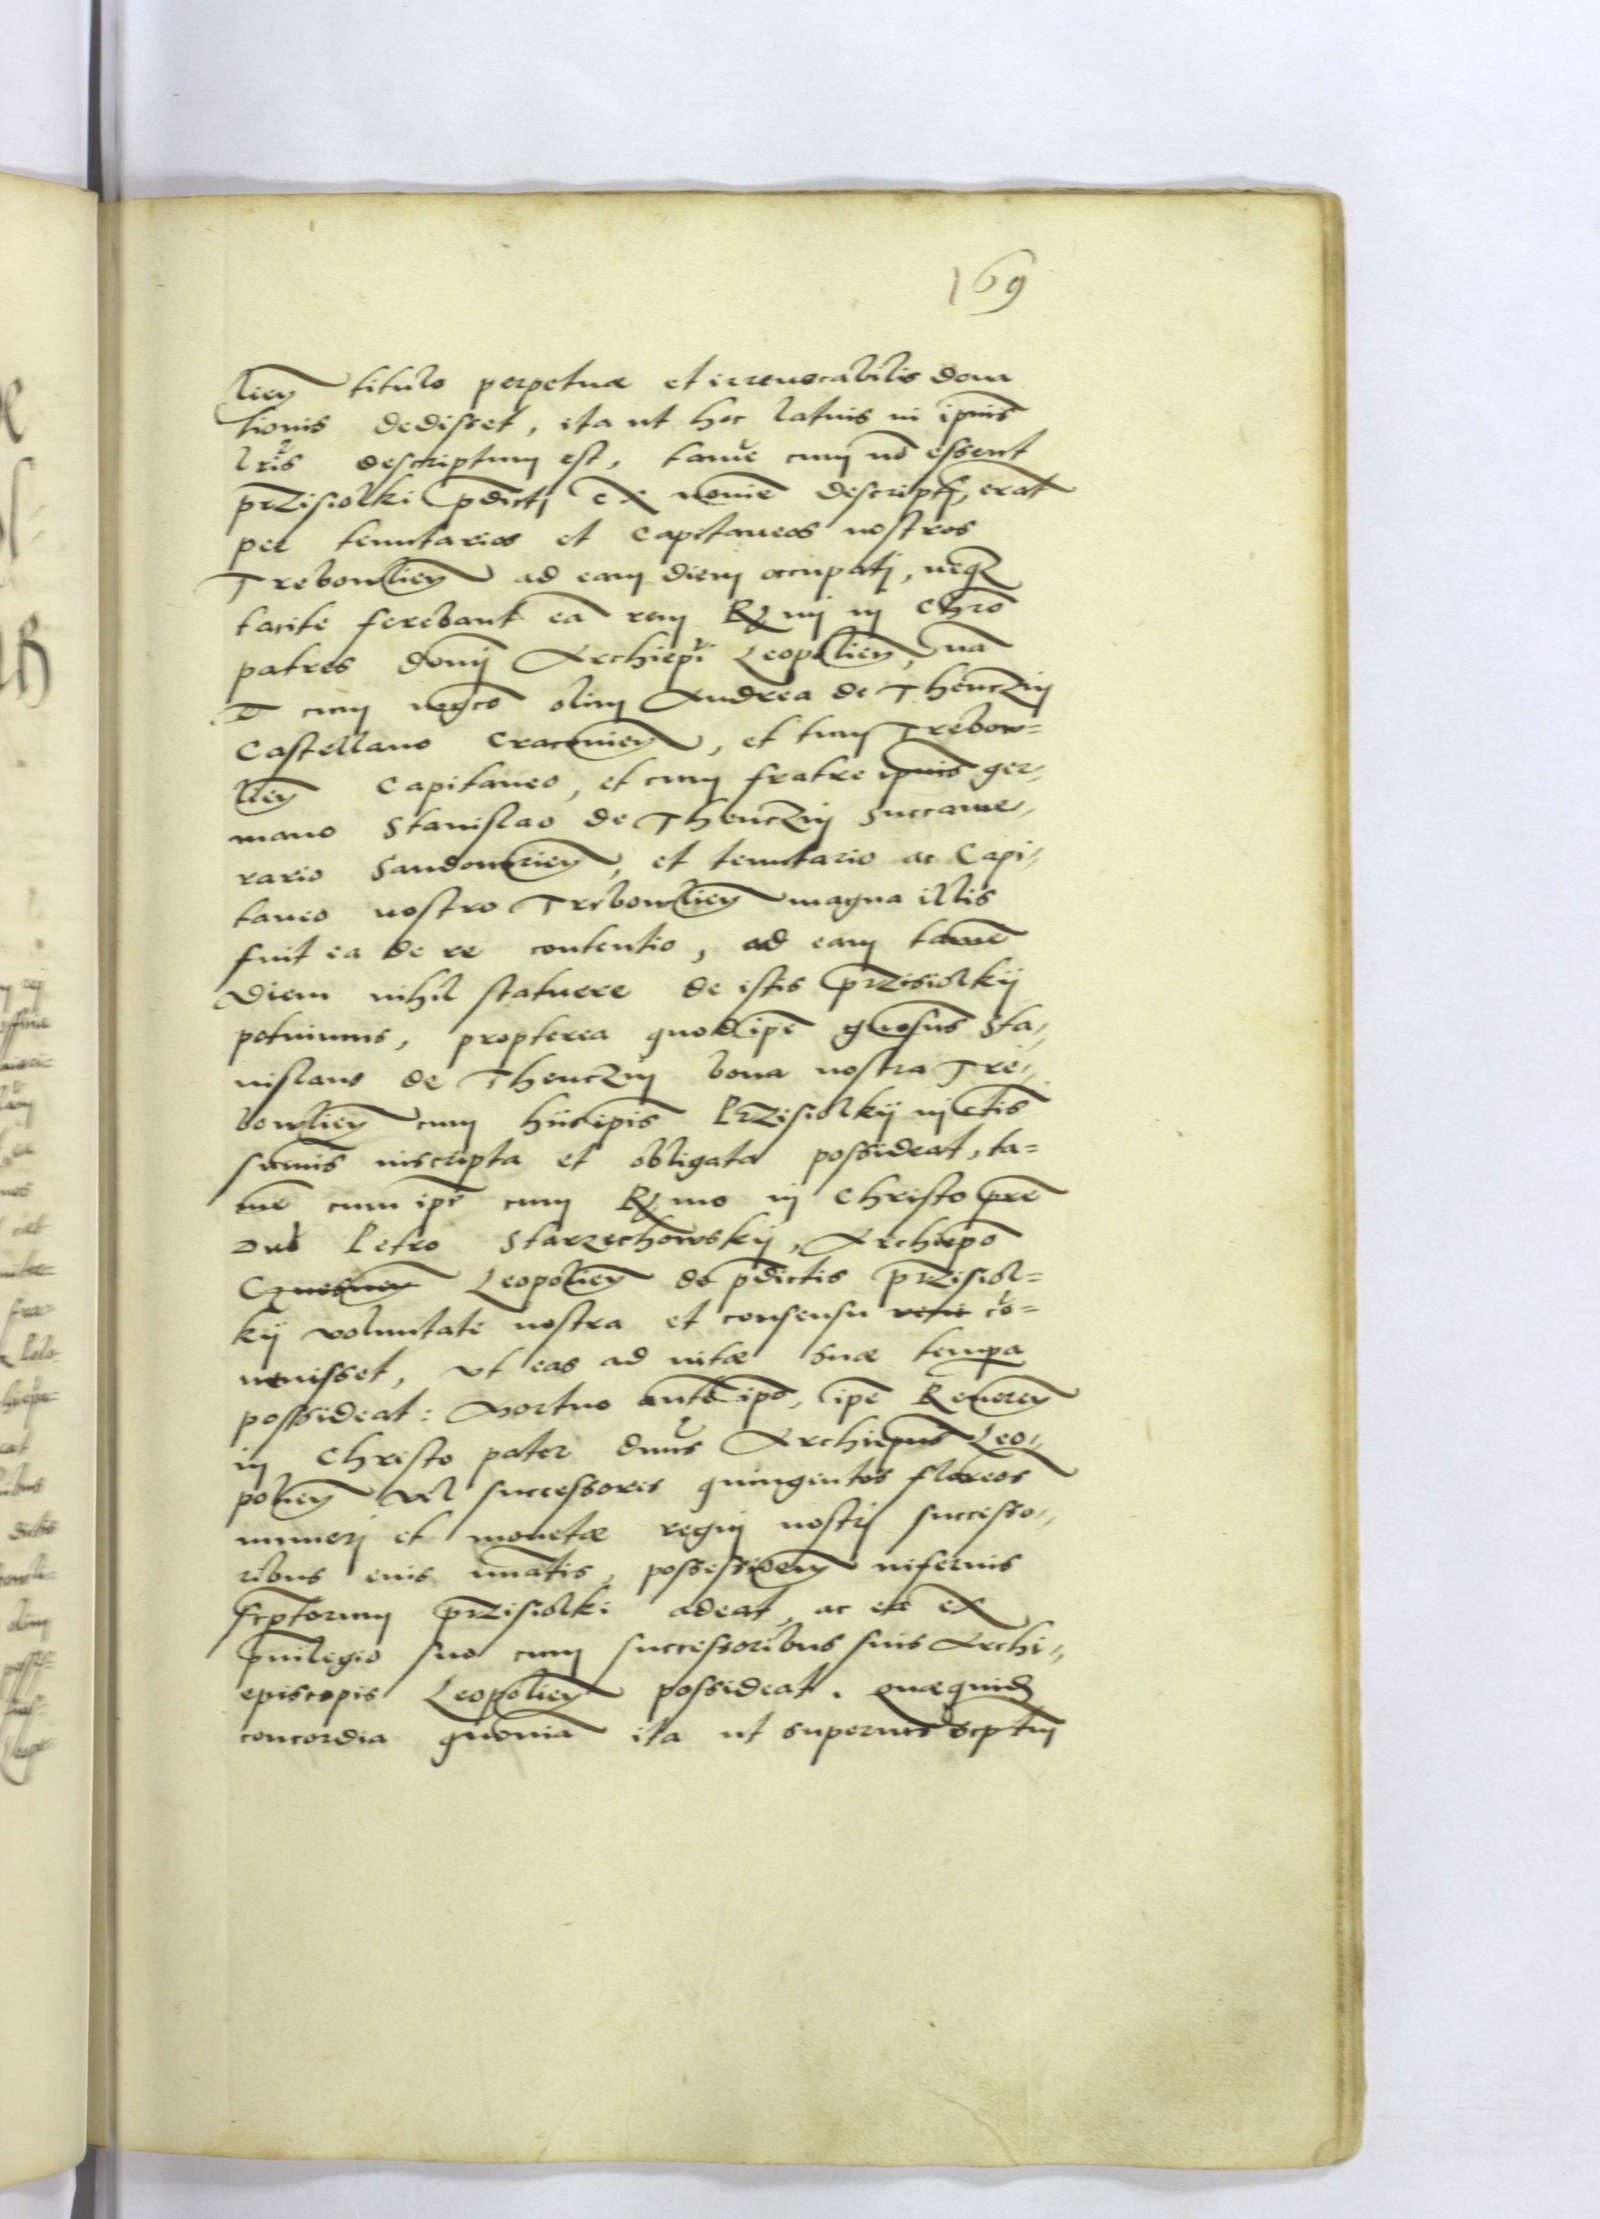 169
lieñ titulo perpetuæ et irreuocabilis dona
tionis dedisset, ita ut hoc latius in ipsius
lr̃is descriptum est, tamẽ cum nõ essent
przisiolki p̃dicti ex nomĩe descripti, erãt
per tenutarios et Capitaneos nostros
Trebowlieñ ad eam diem occupati, neq3
tacite ferebant eã rem R̃mi in Chr̃o
patres domĩ Archiepĩ Leopolieñ, nã
et cum mag̃co olim Andrea de Thenczin
Castellano Cracouieñ, et tum Trebow=
lieñ Capitaneo, et cum fratre ipsius ger,,
mano Stanislao de Thenczin Succame,,
rario Sandomirieñ, et tenutario ac Capi,,
taneo nostro Trebowlieñ magna illis
fuit ea de re contentio, ad eam tamẽ
diem nihil statuere de istis przisiolkij
potuimus, propterea quod ip̃e gñosus Sta,,
nislaus de Thenczin bona nostra Tre,,
bowlieñ cum hijs ip̃is Przisiolkij in c̃tis
sum̃is inscripta et obligata possideat, ta=
mẽ cum ip̃e cum R̃mo in Christo pr̃e
dn̄o Petro Starzechowskij, Archiep̃o
Gnesneñ Leopolieñ de p̃dictis przisiol=
kij voluntate nostra et consensu cõ=
uenisset, vt eas ad vitæ suæ tempa
possideat: Mortuo autẽ ip̃o, ip̃e Reuereñ
in Christo pater dñus Archiep̃us Leo,,
polieñ vel successores quingentos floreos
numeri et monetæ regni nostri successo,,
ribus eius numeratis, possessioem inferius
scptorum przisiolki adeat, ac eã ex
priuilegio suo cum successoribus suis Archi,,
episcopis Leopolieñ possideat. quæquid
concordia quoniã ita ut superius scptum